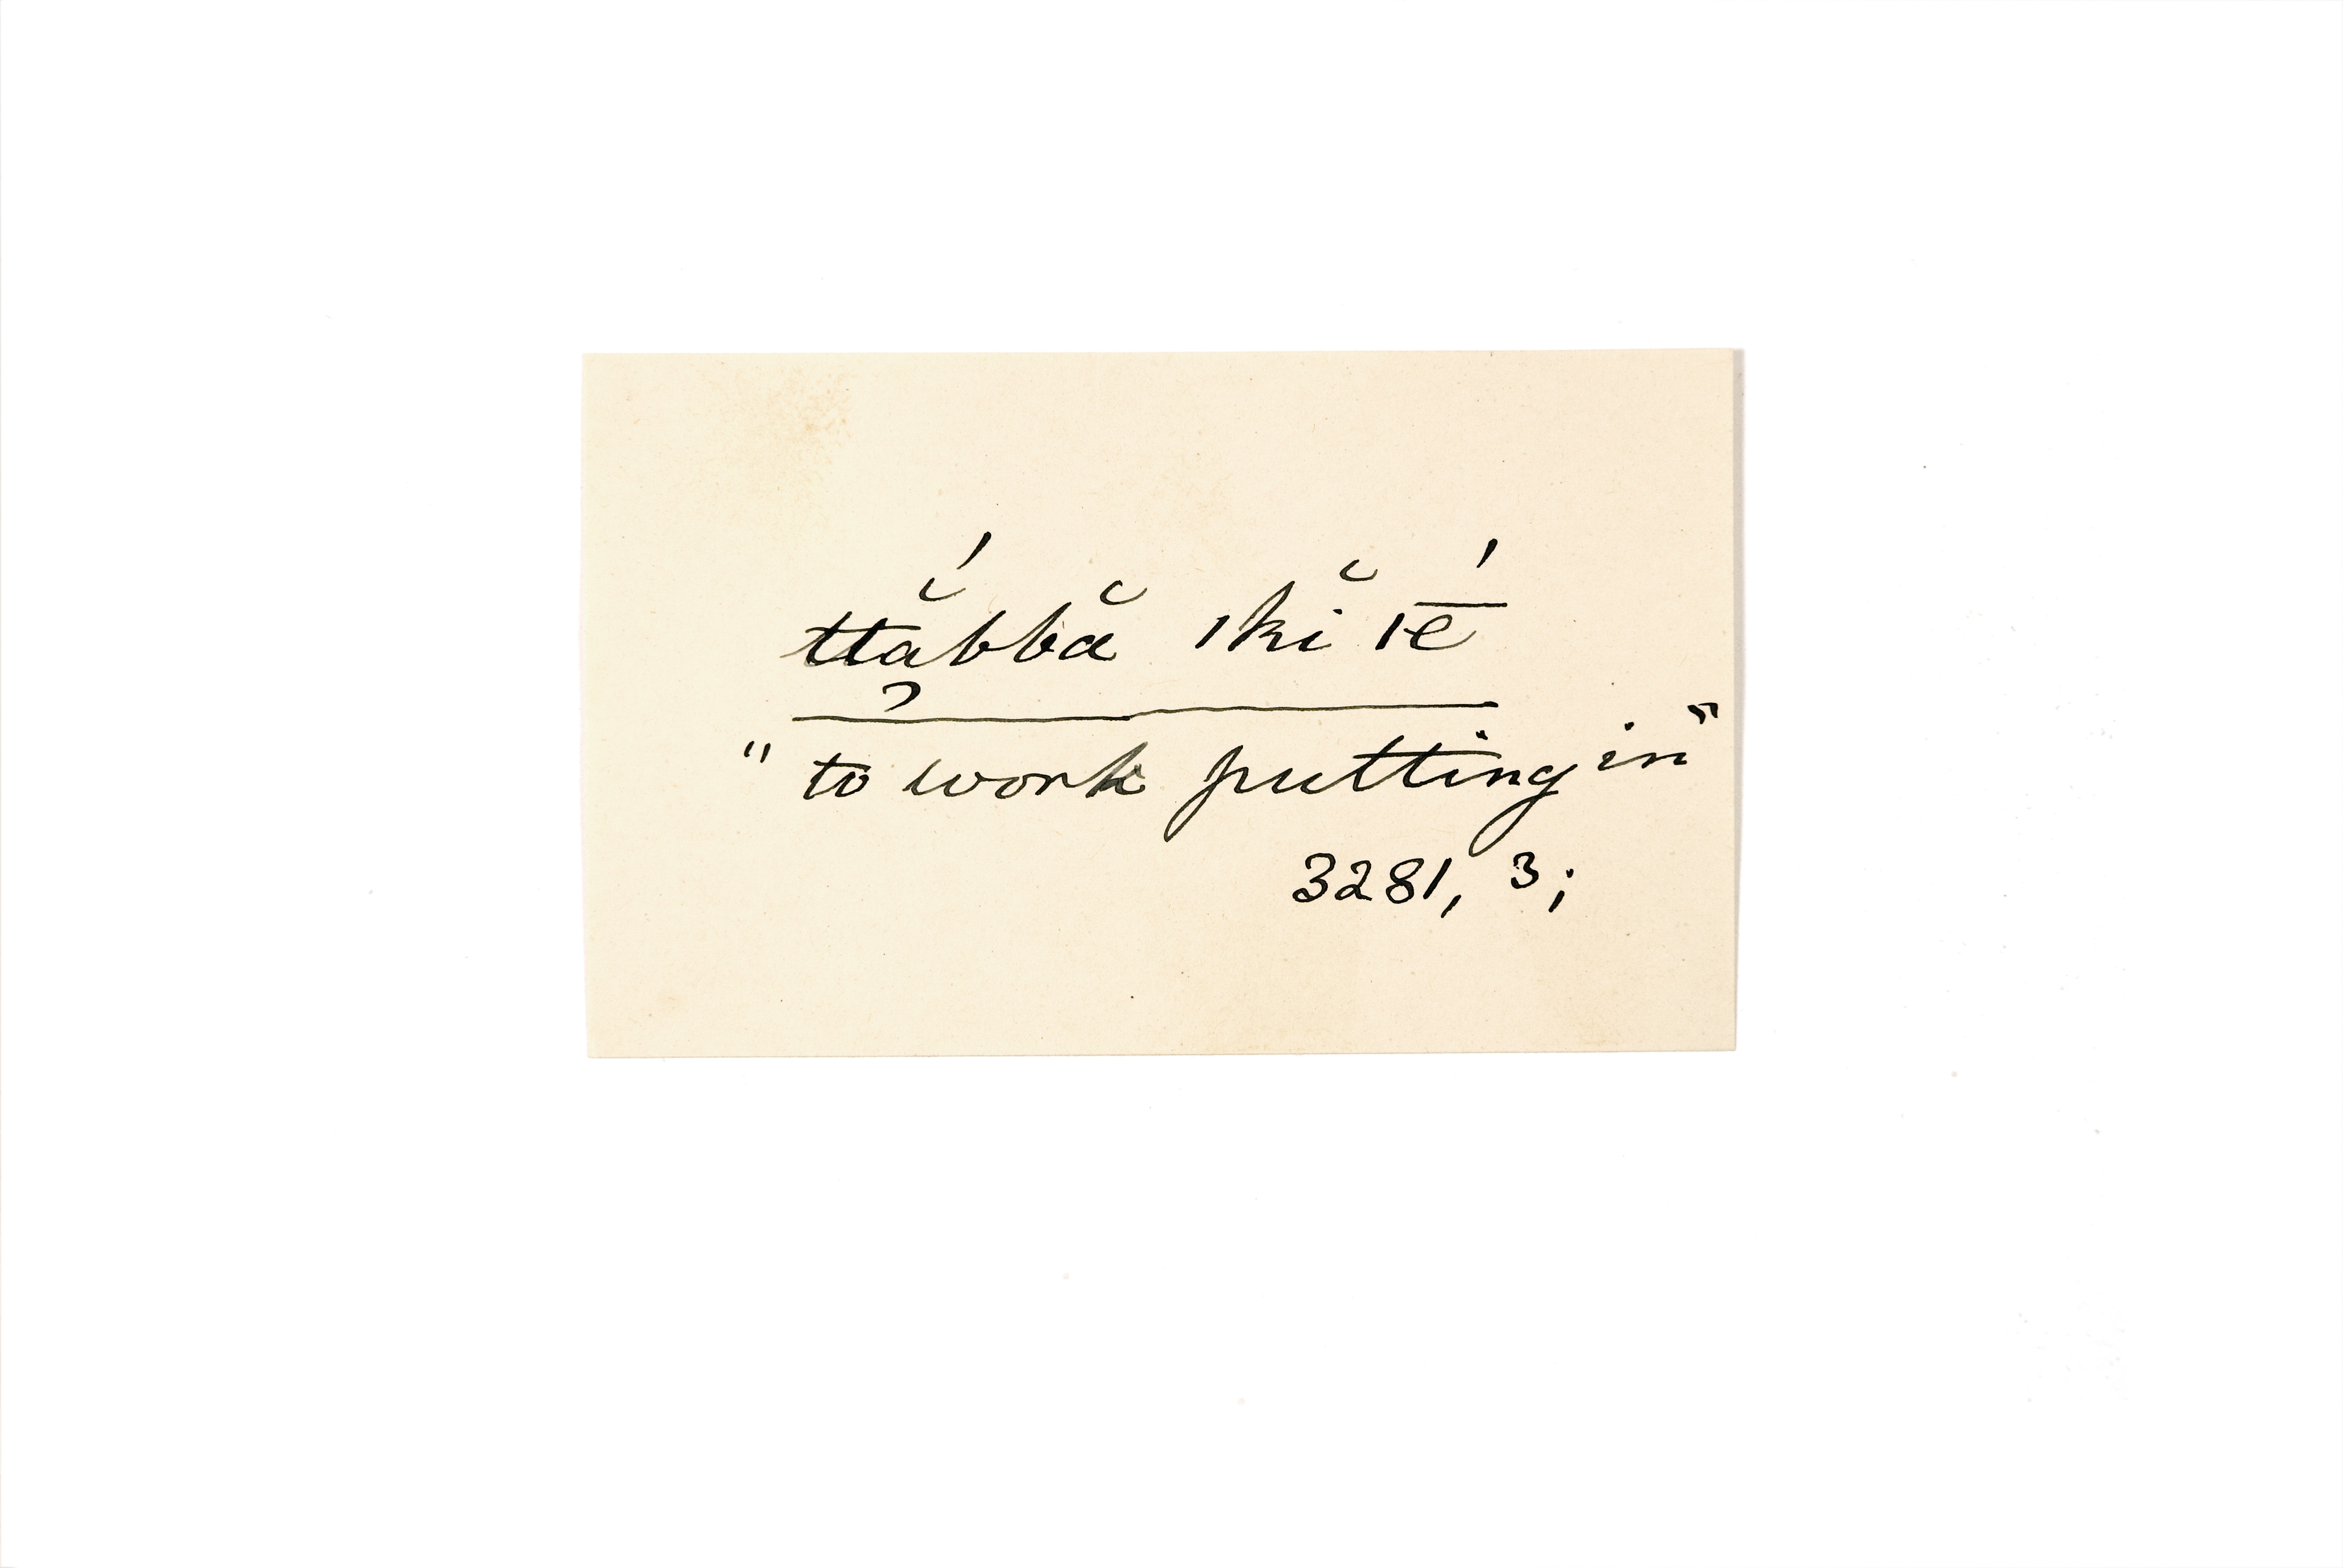 ttắbbă ıkĭ ıḗ
?
" to work putting in "
3281, 3;